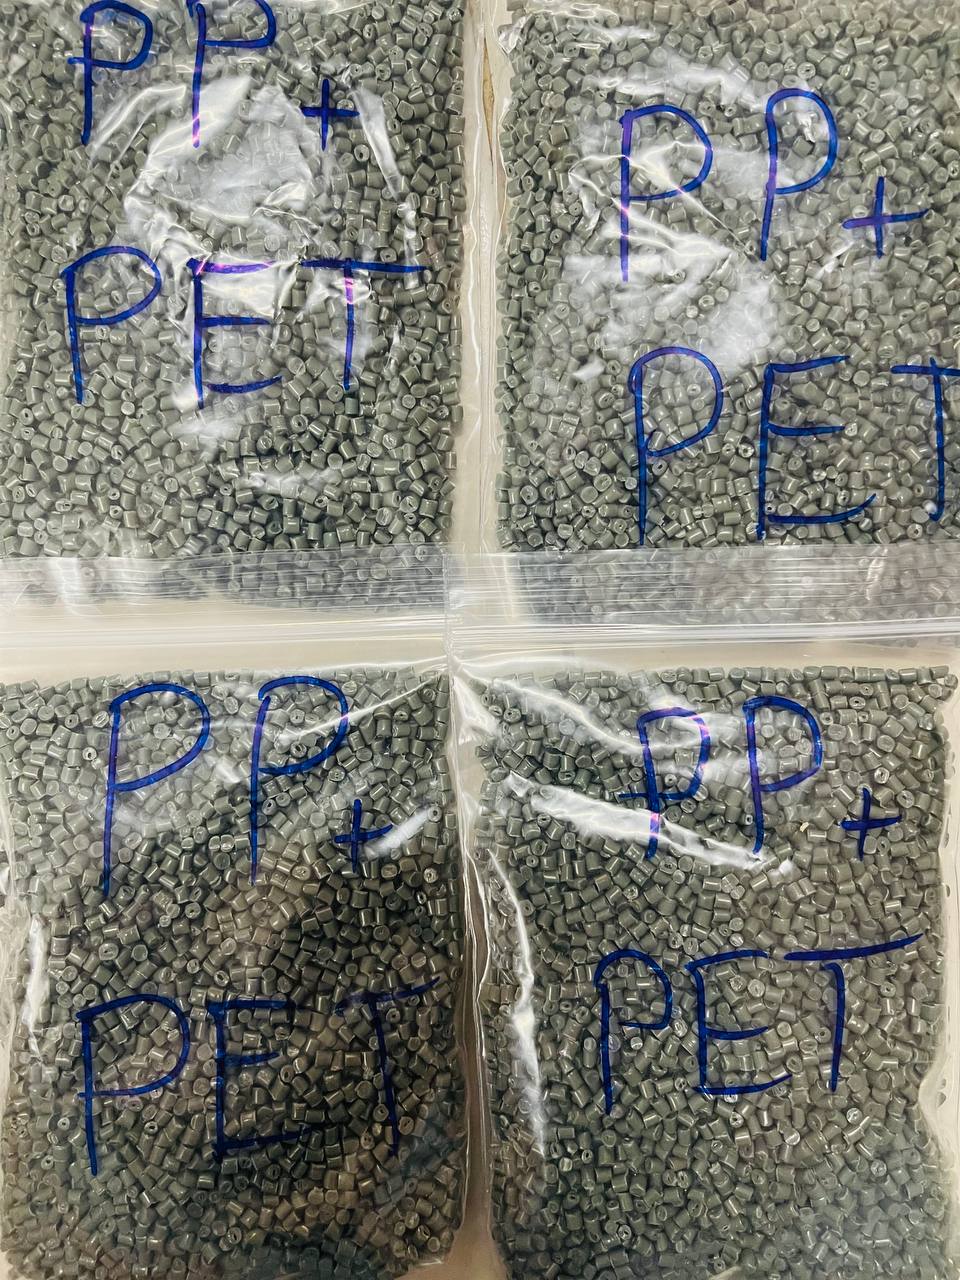 PP+
PET
PP+
PET
PP+
PET
PP+
PET